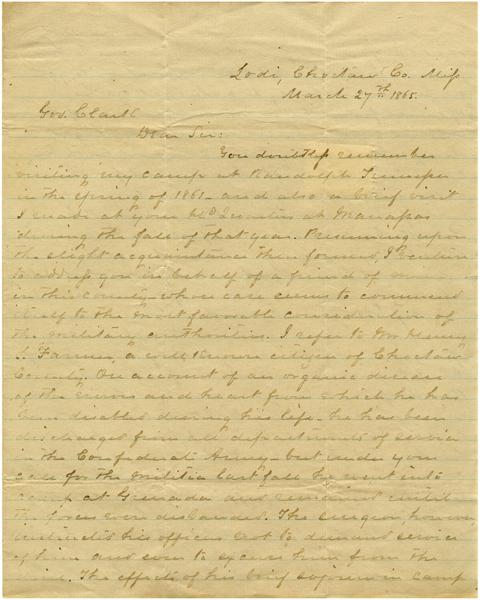 Lodi, Choctaw Co. Miss
March 27th 1865.
Gov. Clark
Dear Sir:
You doubtless remember
visiting my camp at Randolph Tennessee
in the Spring of 1861 - and also a brief visit
I made at your Hd Quarters at Manassas
during the fall of that year. Presuming upon
the slight acquaintance then formed, I venture
to address you in behalf of a friend of mine
in this county whose case seems to commend
itself to the most favorable consideration of
the military authorities. I refer to Mr Henry
Farmer, a well known citizen of Choctaw
County. On account of an organic disease
of the and heart from which he has
been disabled during his life, he has been
discharged from all departments of service
in the Confederate Army - but under your
call for the Militia last fall he went into
camp at Grenada and remained until
the forces were disbanded. The surgeon, however,
his officers not to demand service
of him and even to excuse him from the
. The effects of his brief sojourn in camp